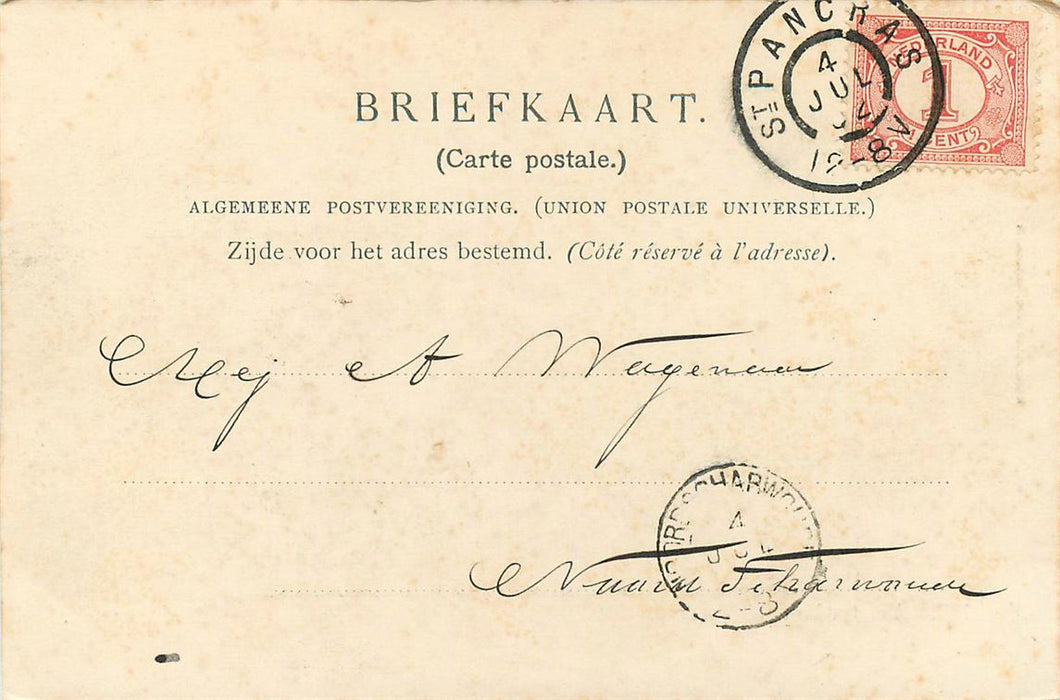 ST PANCRAS
4 JUL
7-8
NEDERLAND
1
CENT
BRIEFKAART.
(Carte postale.)
ALGEMEENE POSTVEREENIGING. (UNION POSTALE UNIVERSELLE.)
Zijde voor het adres bestemd. (Côté réservé à l'adresse).
Mej A Wagenaar
4
JUL
Noord Scharwoude